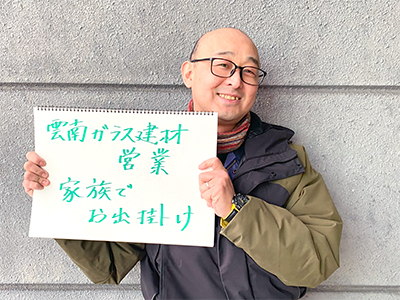 雲南ガラス建材
営業
家族で
お出掛け